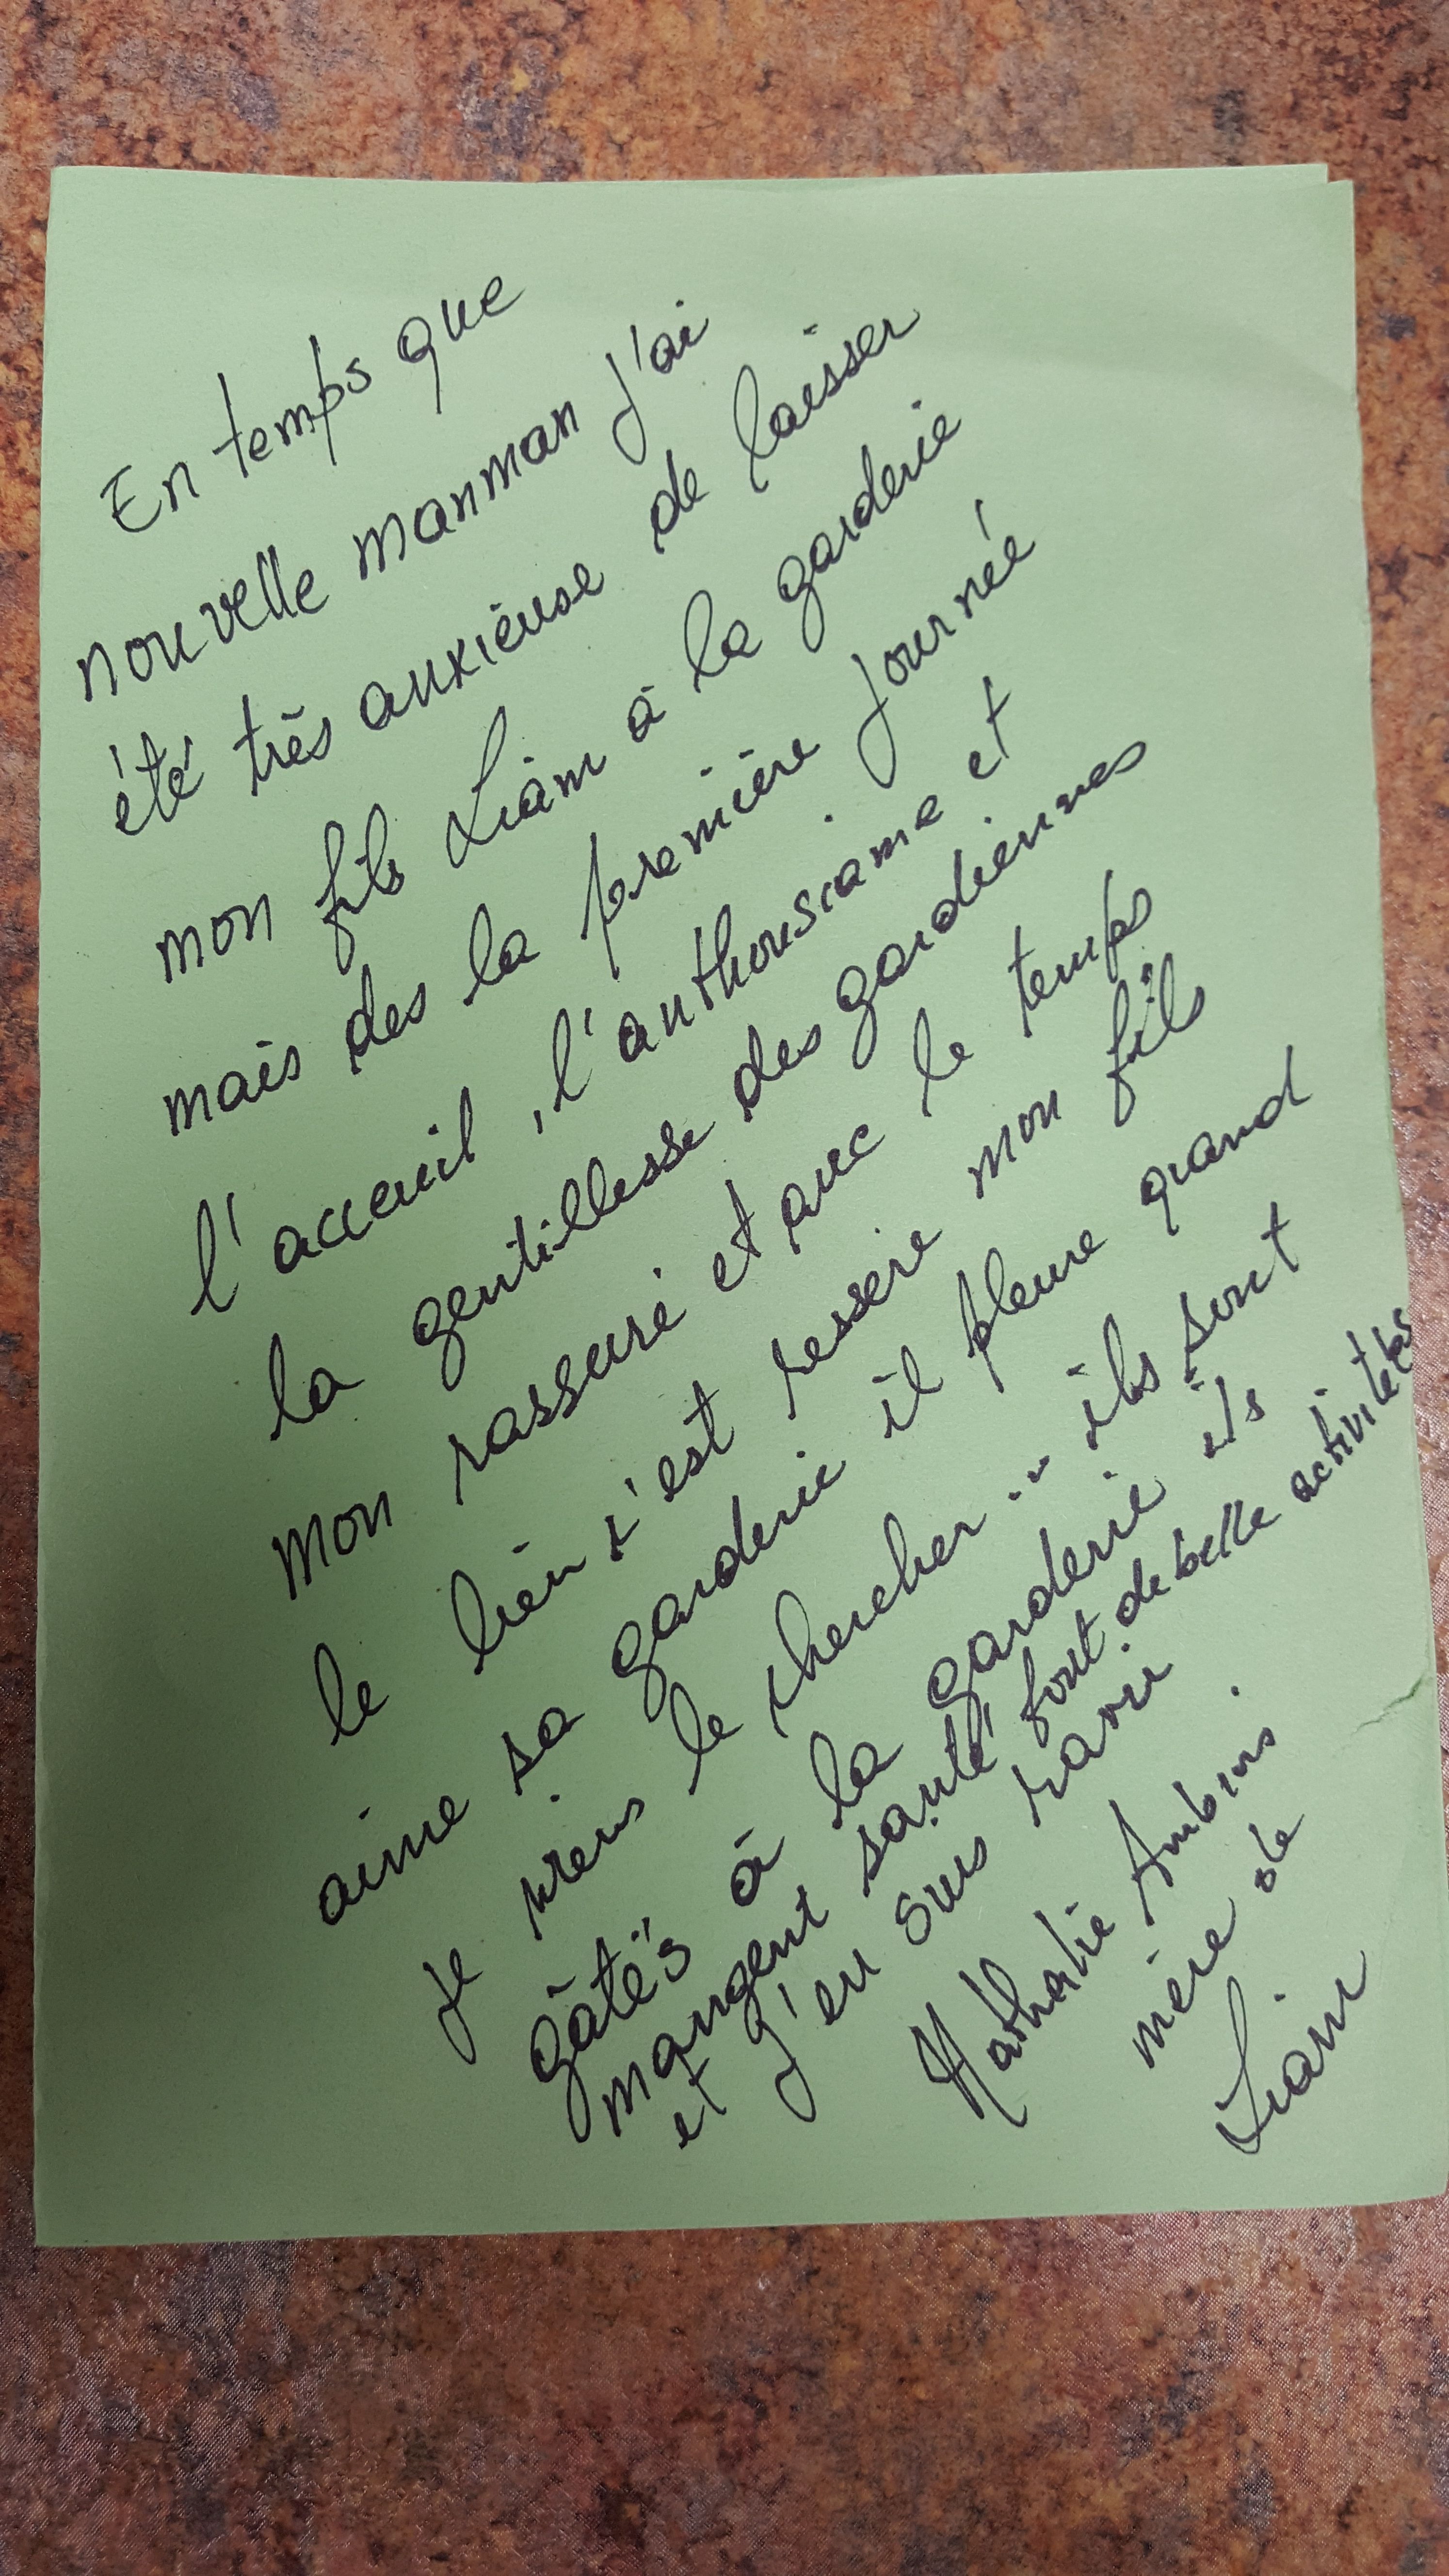 En temps que
nouvelle manman j'ai
été très auxiéuse de laisser
mon fils Liam à la garderie
mais des la première journée
l'acceuil, l'anthousiame et
la gentillesse des gardiennes
mon rassuré et avec le temps
le lien s'est resseré mon fils
aime sa garderie il pleure quand
je viens le chercher... ils sont
gâtés à la garderie ils
mangent santé font de belle activitées
et j'en suis ravie
Nathalie
mère de
Liam